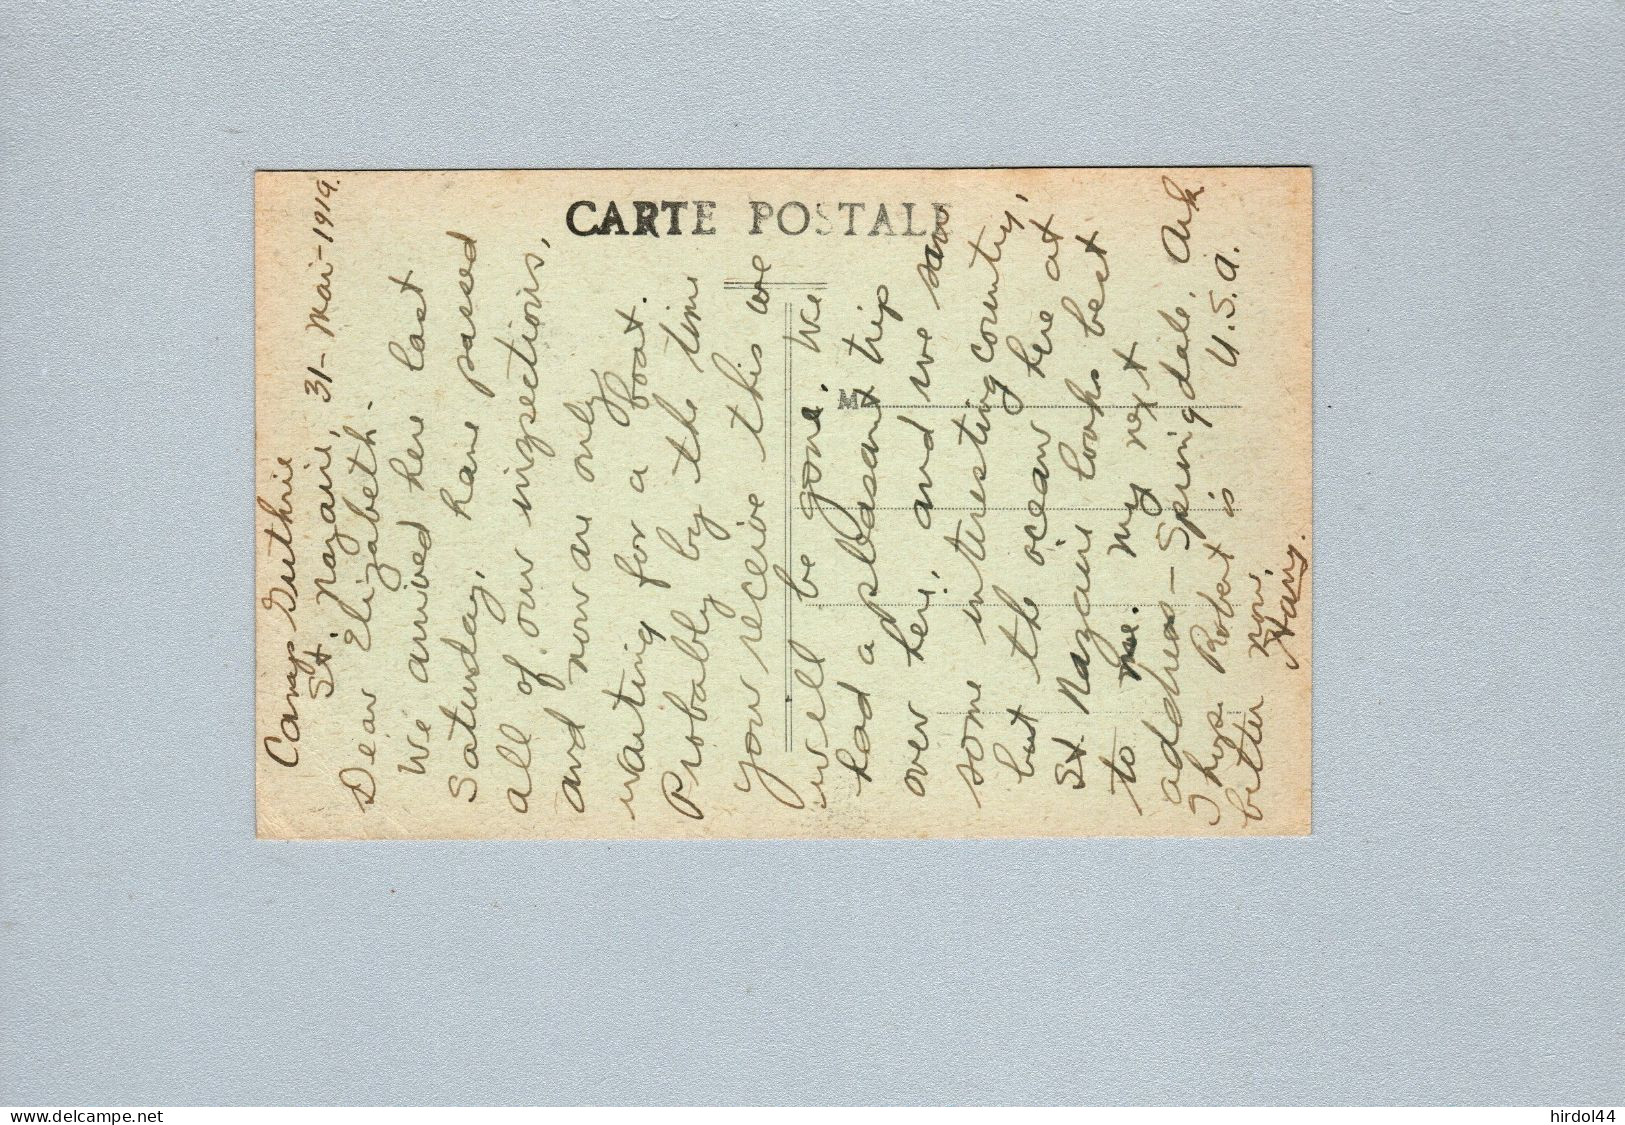 CARTE POSTALE
M
Camp Guthrie
St. Nazaire, 31- Mai-1919.
Dear Elizabeth-
We arrived here last
Saturday, have passed
all of our inspections,
and now are only
waiting for a boat.
Probably by the time
you receive this we
will be gone. We
had a pleasant trip
over here, and we saw
some interesting country,
but the ocean here at
St. Nazaire looks best
to me. My next
address - Springdale, Ark
U.S.A.
I hope Robert is
better now.
Harry.
www.delcampe.net
hirdol44